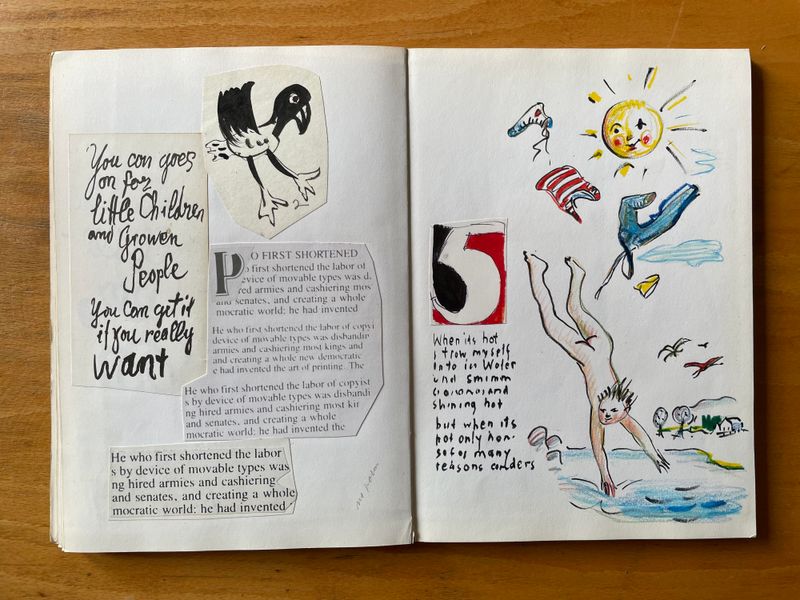 You can goes
on for
little Children
and Growen
People
You can get it
if you really
want
PO FIRST SHORTENED
o first shortened the labor of
evice of movable types was d
red armies and cashiering mos
and senates, and creating a whole
mocratic world: he had invented
He who first shortened the labor of copyi
device of movable types was disbandin
armies and cashiering most kings and
and creating a whole new democratic
e had invented the art of printing. The
He who first shortened the labor of copyist
s by device of movable types was disbandi
ng hired armies and cashiering most kir
and senates, and creating a whole
mocratic world: he had invented the
He who first shortened the labor
s by device of movable types was
ng hired armies and cashiering
and senates, and creating a whole
mocratic world: he had invented
5
When its hot
i trow myself
into
and
shining hot
but when its
not only
many
reasons